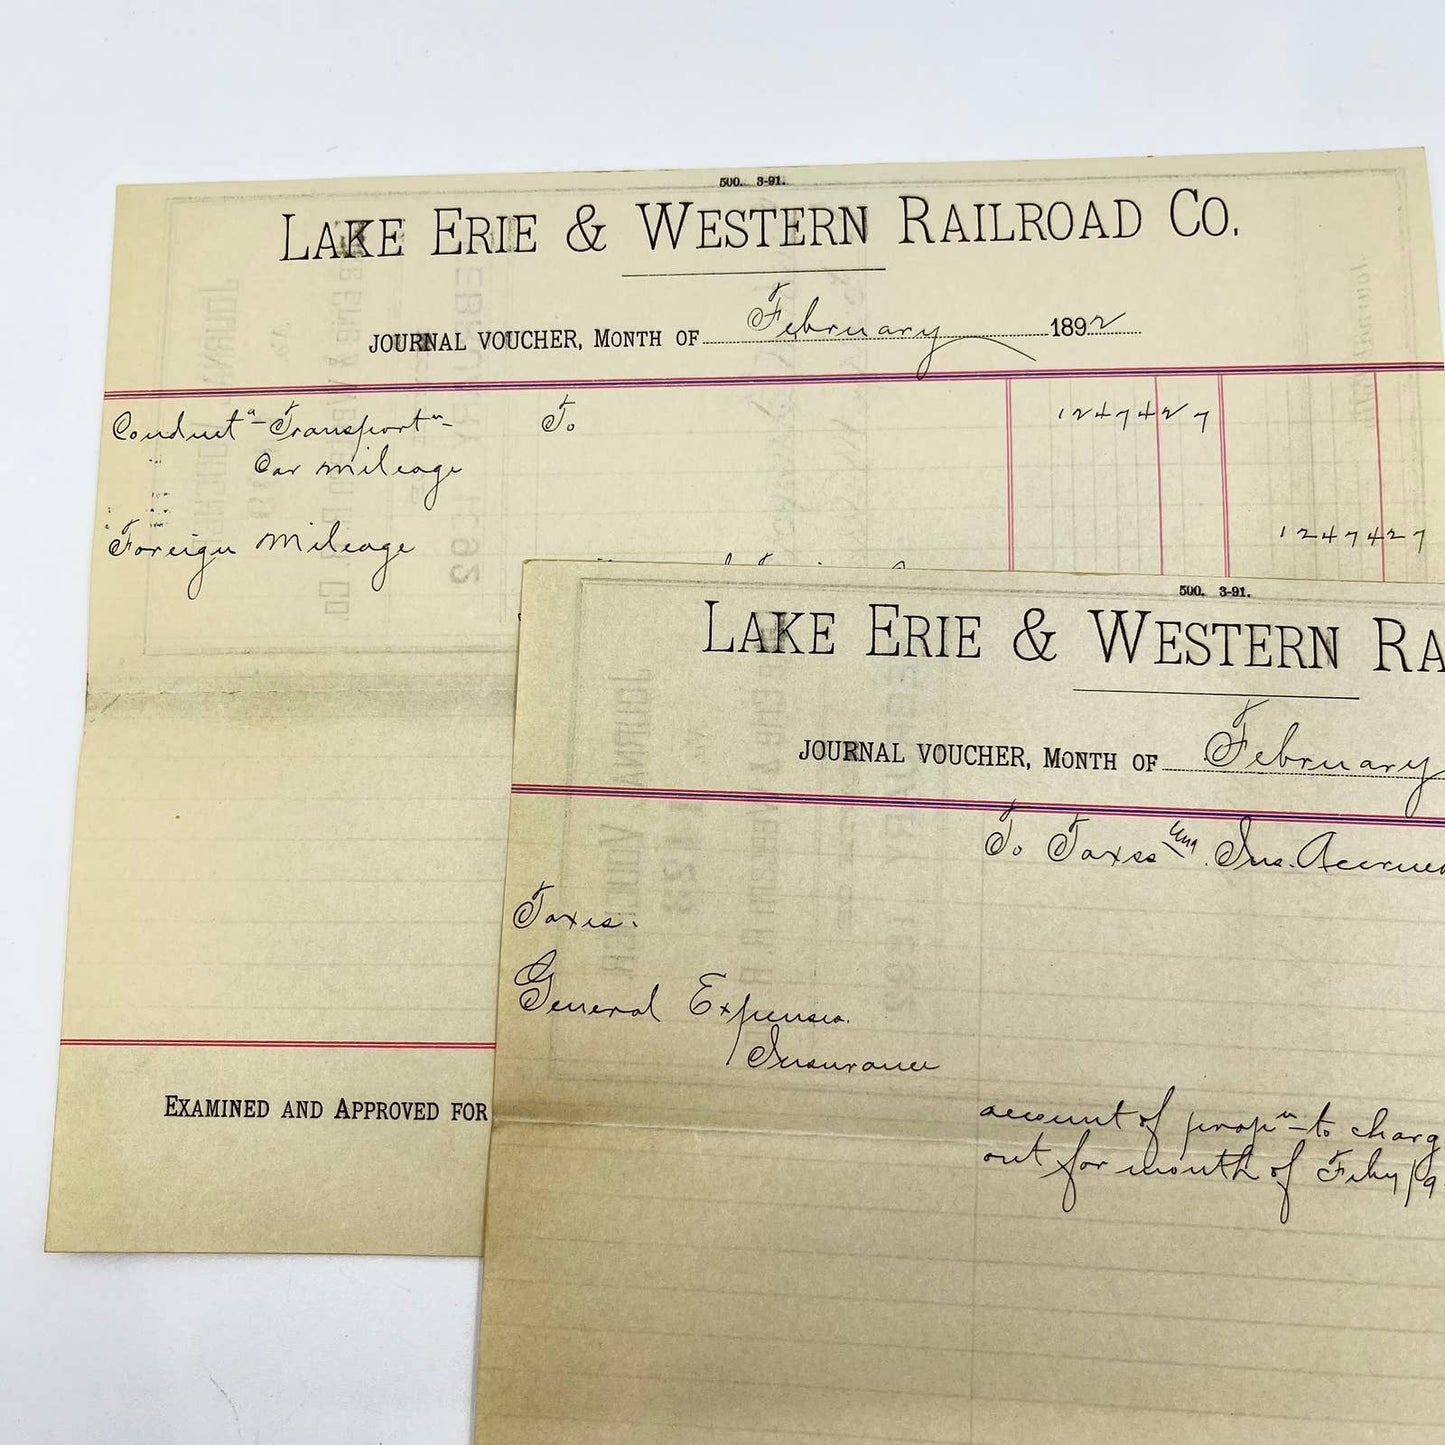 500. 3-91.
LAKE ERIE & WESTERN RAILROAD CO.
JOURNAL VOUCHER, MONTH OF February 1892
Conduct^g - Transport^n - To 12474 27
Car mileage
Foreign Mileage 12474 27
500. 3-91.
LAKE ERIE & WESTERN RA
JOURNAL VOUCHER, MONTH OF February
To Taxes Ins. Accrued
Taxes.
General Expenses.
Insurance
account of prop^n to charg
out for month of Feby/9
EXAMINED AND APPROVED FOR